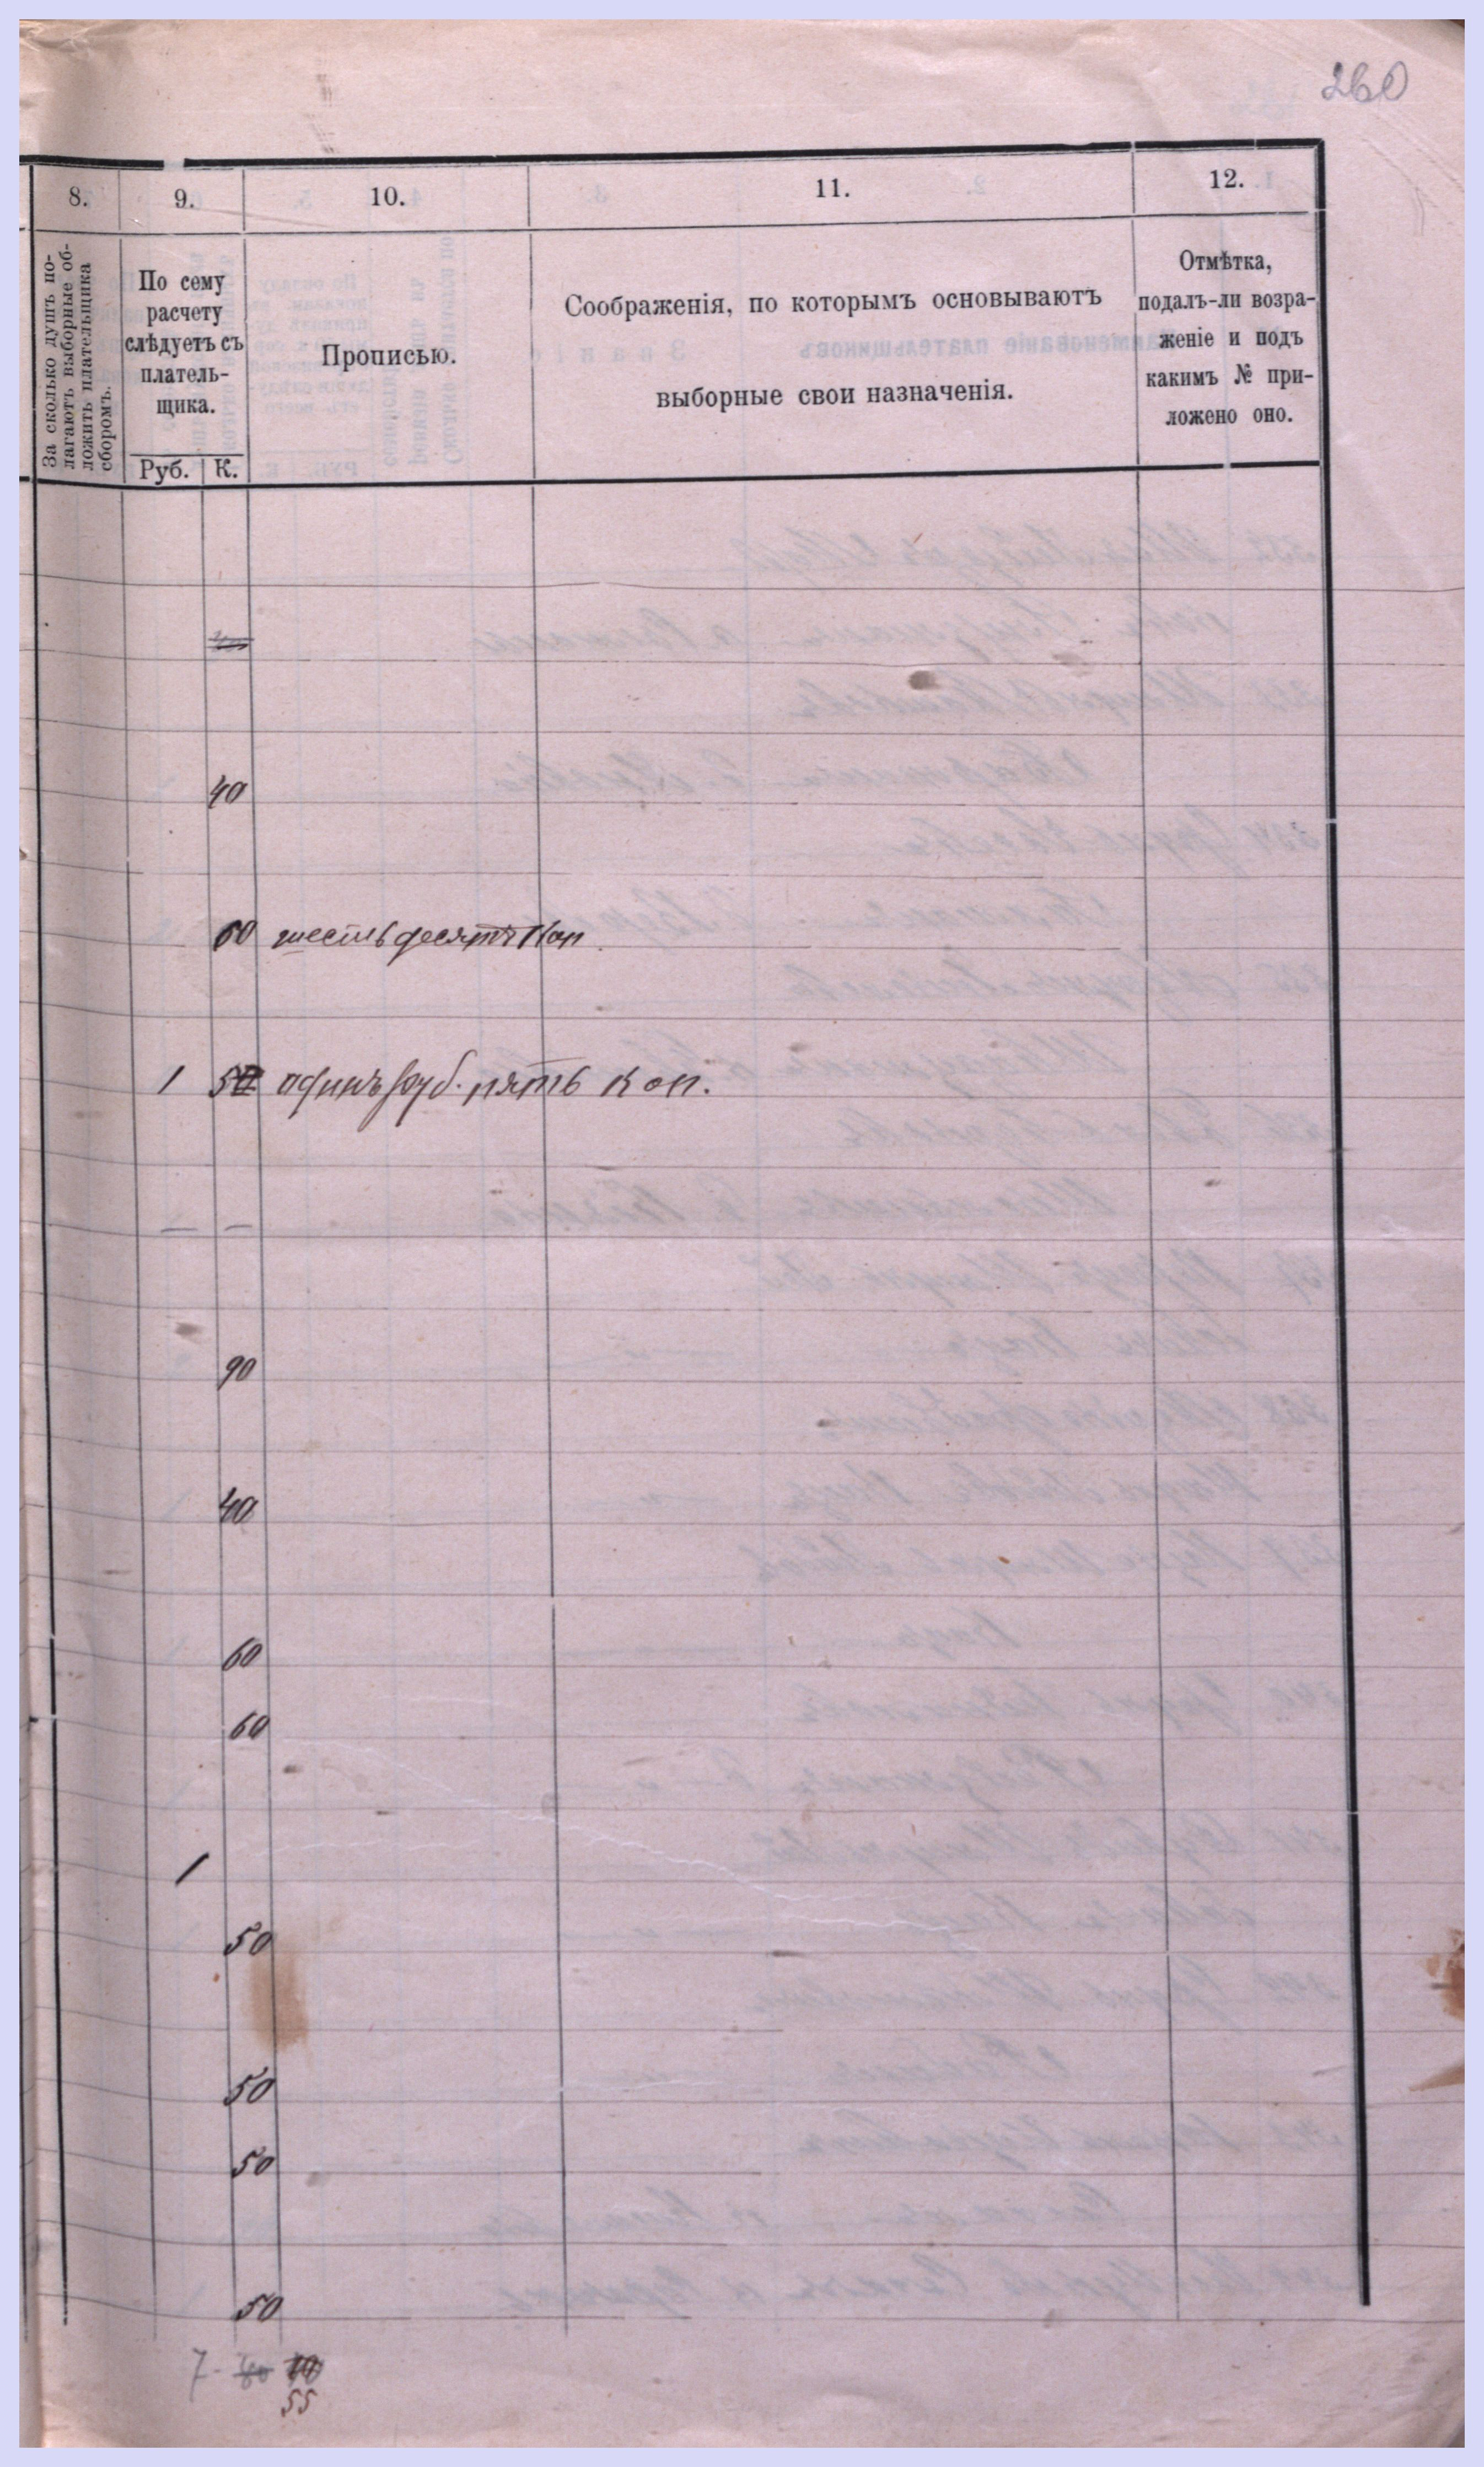 260
8. 9. 10. 11. 12.
За сколько душъ по-
лагаютъ выборные об-
ложить плательщика
сборомъ.
По сему
расчету
слѣдуетъ съ
платель-
щика.
Руб. К.
Прописью.
Соображенія, по которымъ основываютъ
выборные свои назначенія.
Отмѣтка,
подалъ-ли возра-
женіе и подъ
какимъ № при-
ложено оно.
40
60 шестьдесятъ коп
1 5 одинъ руб. пять коп.
— —
90
40
60
60
1
50
50
50
50
7 -
55